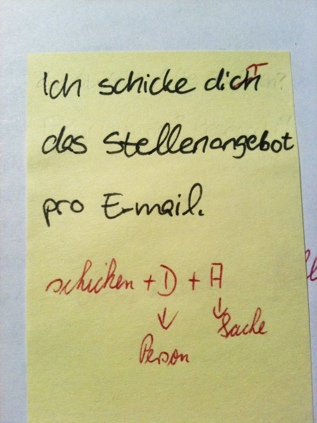 Ich schicke dich
das Stellenangebot
pro E-mail.
schicken + D + A
Person
Sache